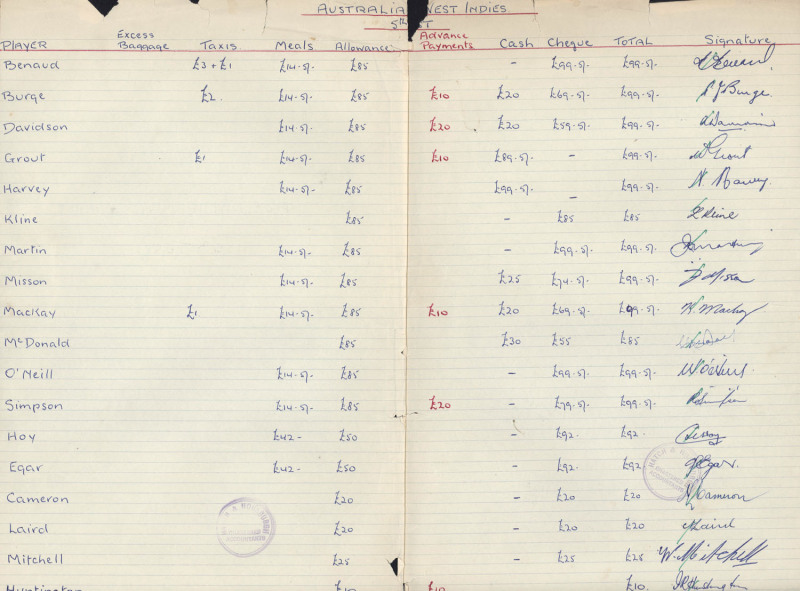 AUSTRALIA WEST INDIES
5TH TEST
PLAYER Excess Baggage Taxis. Meals Allowance Advance Payments Cash Cheque TOTAL Signature
Benaud £3 + £1 £14-5/- £85 - £99-5/- £99-5/-
Burge £2. £14-5/- £85 £10 £20 £69-5/- £99-5/- P J Burge.
Davidson £14-5/- £85 £20 £20 £59-5/- £99-5/-
Grout £1 £14-5/- £85 £10 £89-5/- - £99-5/- Grout
Harvey £14-5/- £85 £99-5/- - £99-5/- N. Harvey.
Kline £85 - £85 £85 Kline
Martin £14-5/- £85 - £99-5/- £99-5/-
Misson £14-5/- £85 £25 £74-5/- £99-5/- Misson
Mackay £1 £14-5/- £85 £10 £20 £69-5/- £99-5/- K. Mackay
McDonald £85 £30 £55 £85
O'Neill £14-5/- £85 - £99-5/- £99-5/-
Simpson £14-5/- £85 £20 - £79-5/- £99-5/-
Hoy £42- £50 - £92. £92.
Egar £42- £50 - £92. £92 Egar.
Cameron £20 - £20 £20 Cameron
Laird £20 - £20 £20 Laird
Mitchell £25 - £25 £25 W. Mitchell
Huntington £10 £10 £10. Huntington